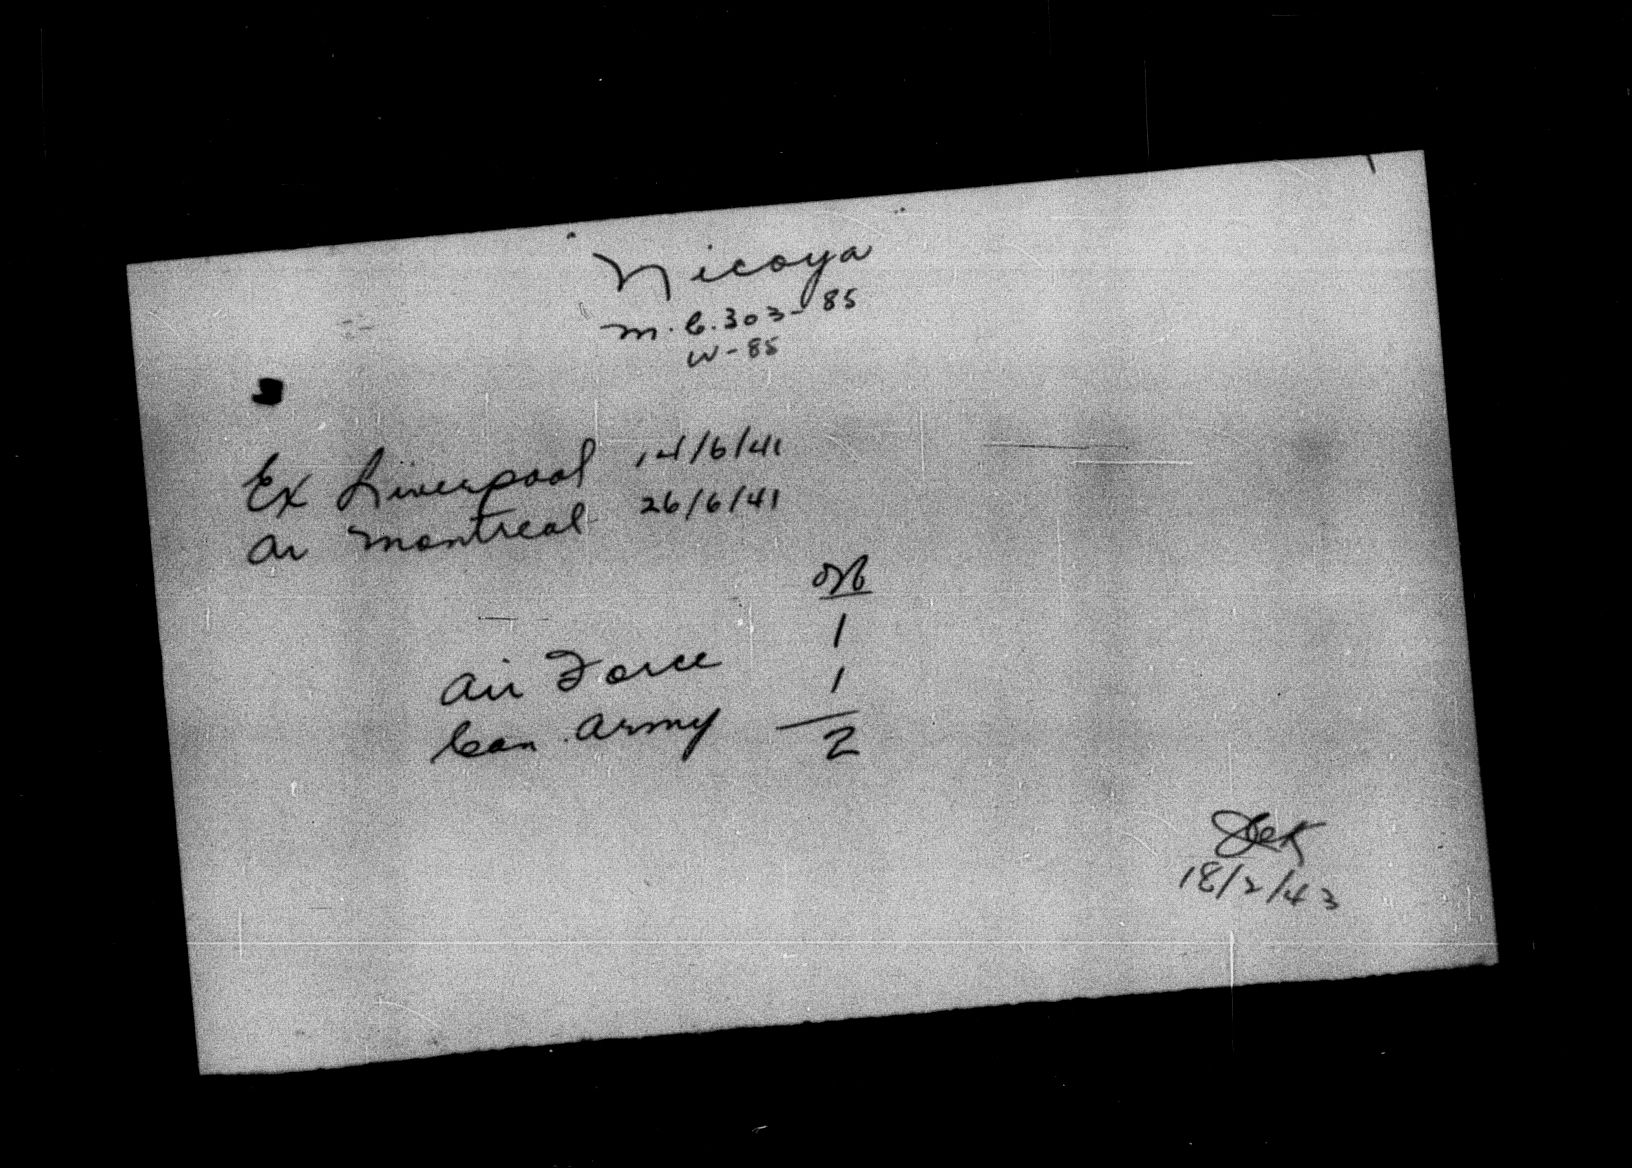 Nicoya
M.C. 303-85
W-85
Ex Liverpool 14/6/41
Ar Montreal 26/6/41
1
Air Force 1
Can. Army
2
18/2/43